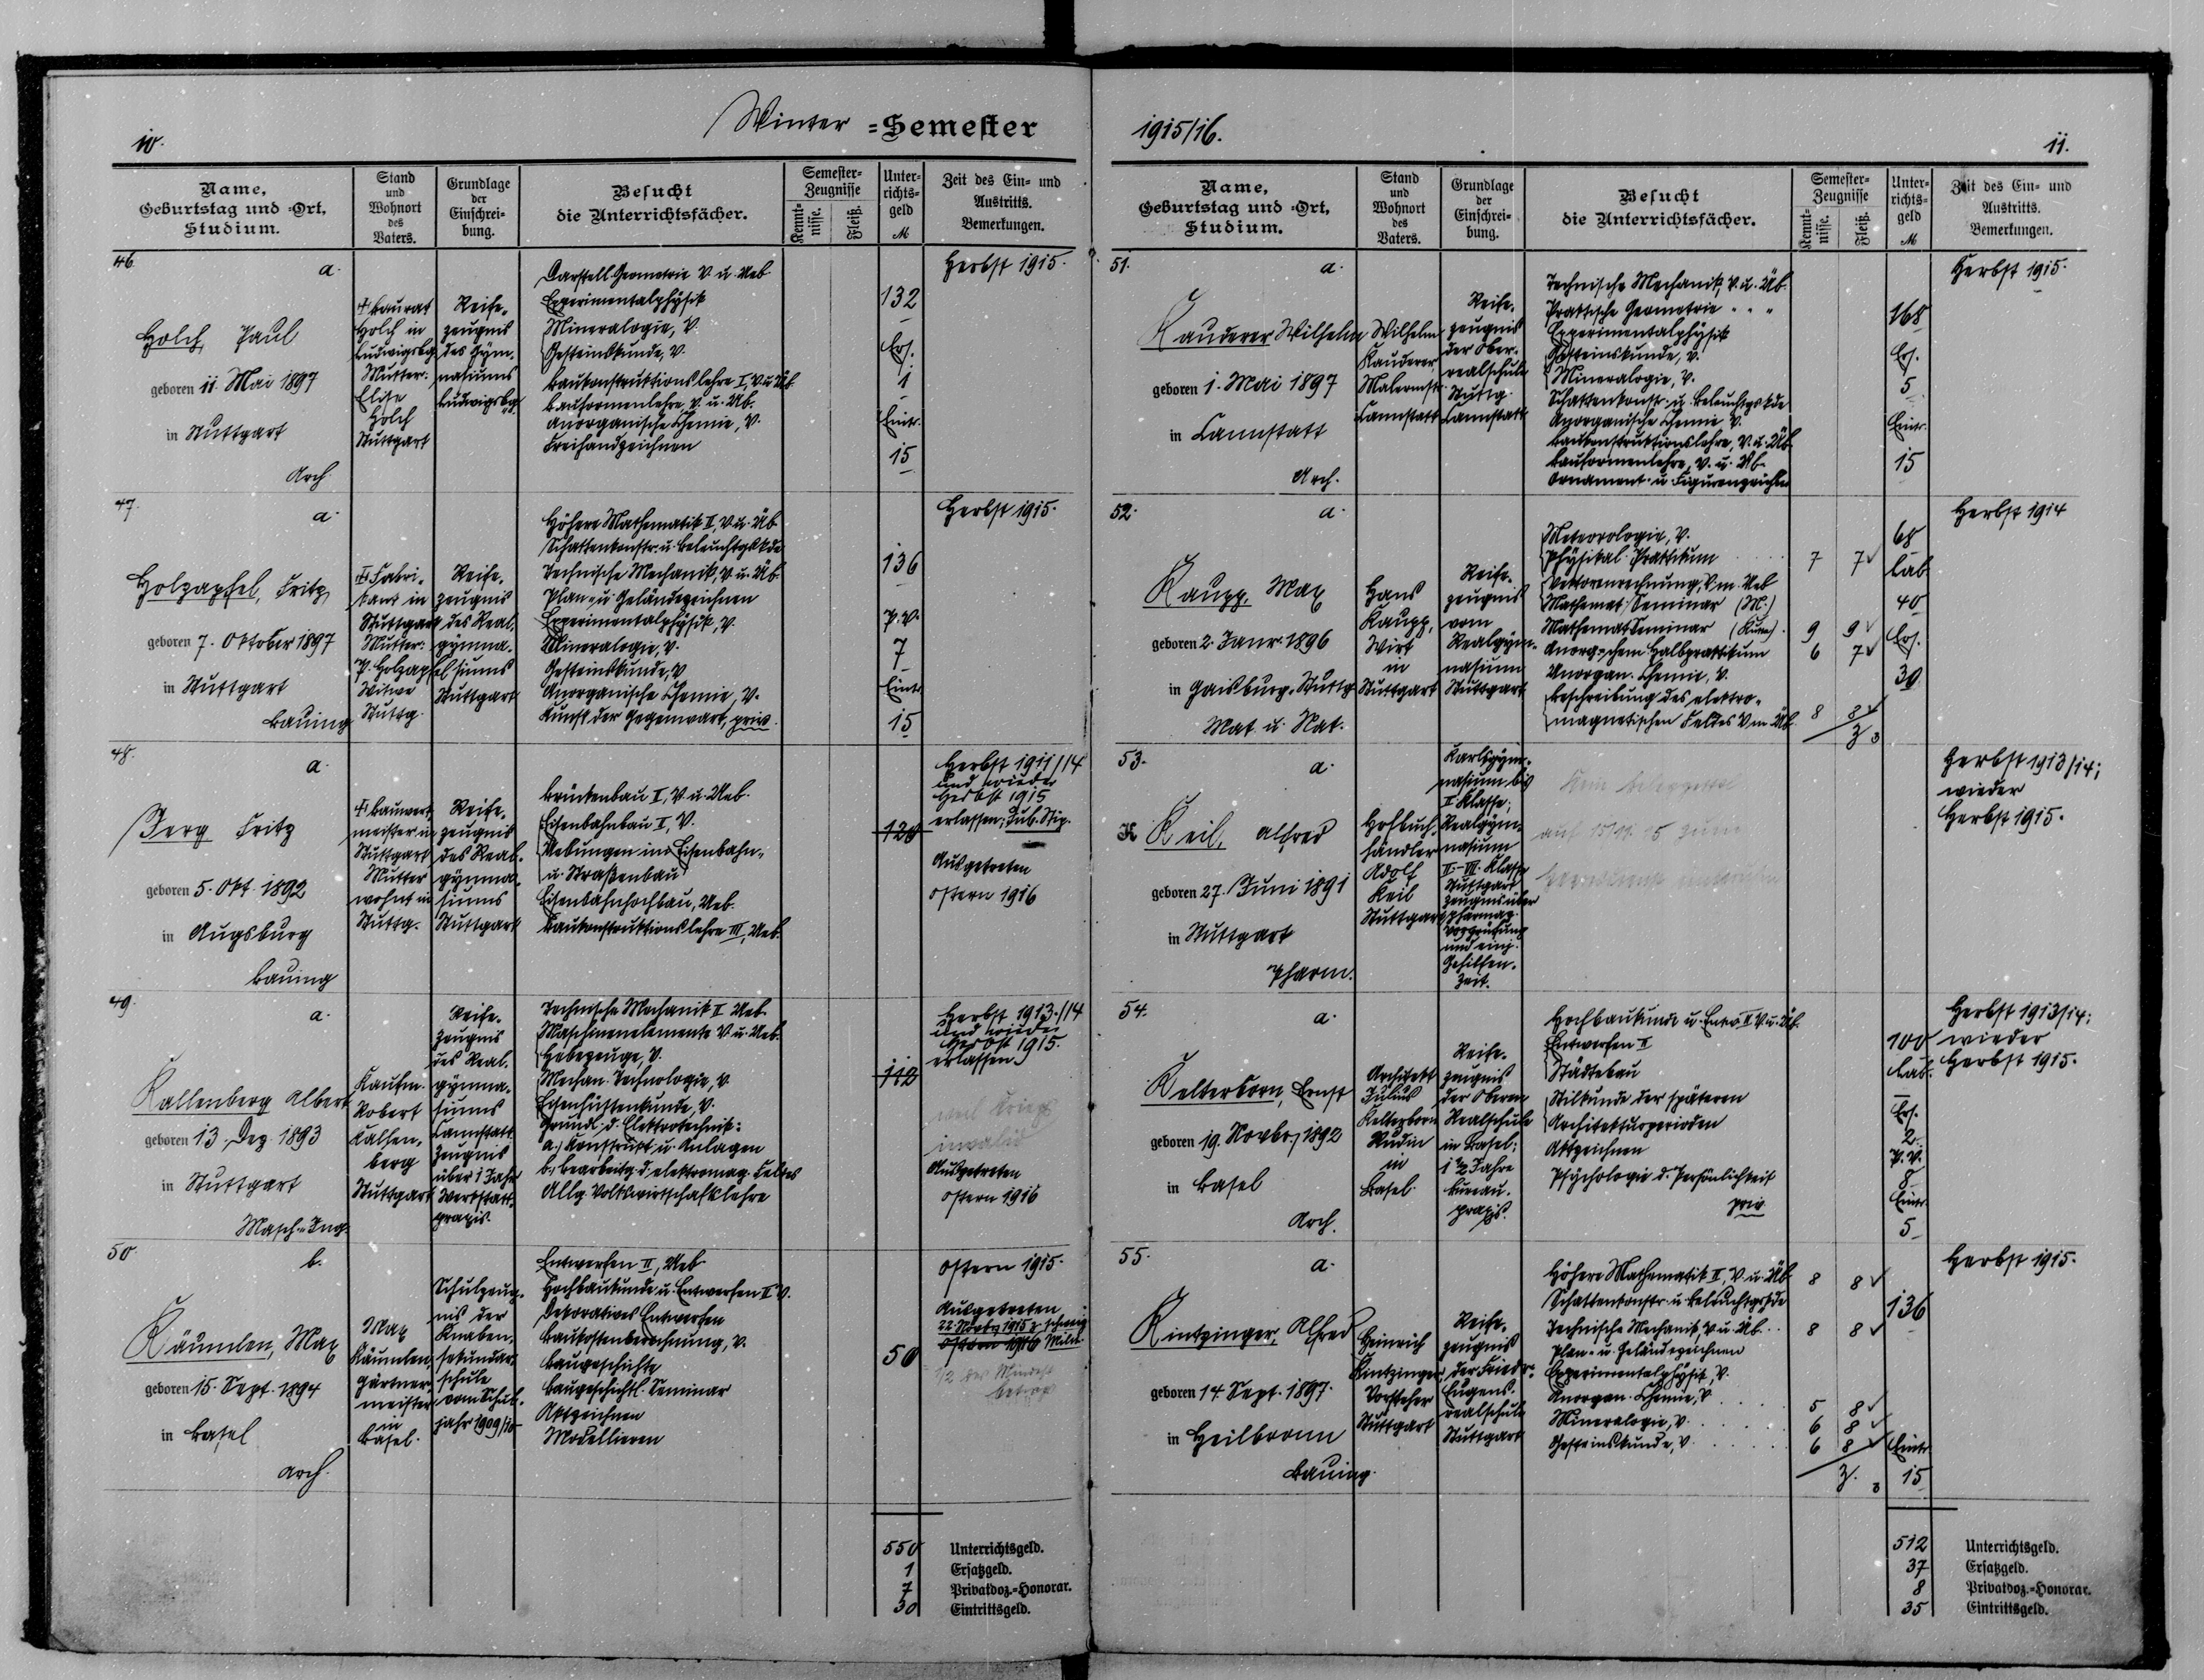 10.
Winter =Semester
Name,
Geburtstag und =Ort,
Studium.
Stand
und
Wohnort
des
Vaters.
Grundlage
der
Einschrei-
bung.
Besucht
die Unterrichtsfächer.
Semester-
Zeugnisse
Kennt-
nisse.
Fleiß.
Unter-
richts-
geld
M
Zeit des Ein- und
Austritts.
Bemerkungen.
46.
a.
Holch, Paul
geboren 11. Mai 1897
in Stuttgart
Arch.
† Baurat
Holch in
Ludwigsbg.
Mutter:
Elise
Holch
Stuttgart
Reife-
zeugnis
des Gym-
nasiums
Ludwigsbg.
Darstell. Geometrie V. u. Ueb.
Experimentalphysik
Mineralogie, V.
Gesteinskunde, V.
Baukonstruktionslehre I, V. u. Üb.
Bauformenlehre, V. u. Üb.
Anorganische Chemie, V.
Freihandzeichnen
132
Ers.
1
Eintr.
15
Herbst 1915.
47.
a.
Holzapfel, Fritz
geboren 7. Oktober 1897
in Stuttgart
Bauing.
† Fabri-
kant in
Stuttgart
Mutter:
P. Holzapfel
Witwe
Stuttg.
Reife-
zeugnis
des Real-
gymna-
siums
Stuttgart
Höhere Mathematik II, V. u. Üb.
Schattenkonstr. u. Beleuchtgskde
Technische Mechanik, V. u. Üb.
Plan- u. Geländezeichnen
Experimentalphysik, V.
Mineralogie, V.
Gesteinskunde, V.
Anorganische Chemie, V.
Kunst der Gegenwart, priv.
136
P. V.
7
Eintr.
15
Herbst 1915.
48.
a.
Jerg Fritz
geboren 5. Okt. 1892
in Augsburg
Bauing
† Bauwerk-
meister in
Stuttgart
Mutter
wohnt in
Stuttg.
Reife-
zeugnis
des Real-
gymna-
siums
Stuttgart
Brückenbau II, V. u. Ueb.
Eisenbahnbau II, V.
Uebungen im Eisenbahn-
u. Straßenbau
Eisenbahnhochbau, Ueb.
Baukonstruktionslehre III, Ueb.
120
Herbst 1911/14
und wieder
Herbst 1915
erlassen; Jub. Stip.
Ausgetreten
Ostern 1916
49.
a.
Kallenberg Albert
geboren 13. Dez. 1893
in Stuttgart
Masch.-Ing.
Kaufm.
Robert
Kallen-
berg
Stuttgart
Reife-
zeugnis
des Real-
gymna-
siums
Cannstatt
Zeugnis
über 1 Jahr
Werkstatt-
praxis.
Technische Mechanik II Ueb.
Maschinenelemente V. u. Ueb.
Hebezeuge, V.
Mechan. Technologie, V.
Eisenhüttenkunde, V.
Grundl. d. Elektrotechnik:
a., Konstrukt. u. Anlagen
b., Bearbeitg. d. elektromag. Feldes
Allg. Volkswirtschaftslehre
112
Herbst 1913./14
und wieder
Herbst 1915.
erlassen
weil Kriegs
invalid
Ausgetreten
Ostern 1916
50
b.
Käumlen, Max
geboren 15. Sept. 1894
in Basel
Arch.
Max
Käumlen,
Gärtner-
meister
in
Basel.
Schulzeug-
nis der
Knaben-
sekundar-
schule
vom Schul-
jahr 1909/10
Entwerfen II, Ueb.
Hochbaukunde u. Entwerfen II V.
Dekoratives Entwerfen
Baukostenberechnung, V.
Baugeschichte
Baugeschichtl. Seminar
Aktzeichnen
Modellieren
50
Ostern 1915.
Ausgetreten
Ostern 1916
550 Unterrichtsgeld.
1 Ersatzgeld.
7 Privatdoz.=Honorar.
30 Eintrittsgeld.
1915/16.
11.
Name,
Geburtstag und =Ort,
Studium.
Stand
und
Wohnort
des
Vaters.
Grundlage
der
Einschrei-
bung.
Besucht
die Unterrichtsfächer.
Semester-
Zeugnisse
Kennt-
nisse.
Fleiß.
Unter-
richts-
geld
M
Zeit des Ein- und
Austritts.
Bemerkungen.
51.
a.
Kauderer Wilhelm
geboren 1. Mai 1897
in Cannstatt
Arch.
Wilhelm
Kauderer,
Malermstr.
Cannstatt
Reife-
zeugnis
der Ober-
realschule
Stuttg.
Cannstatt
Technische Mechanik, V. u. Üb.
Praktische Geometrie " " "
Experimentalphysik
Gesteinskunde, V.
Mineralogie, V.
Schattenkonstr. u. Beleuchtgskde
Anorganische Chemie V.
Baukonstruktionslehre, V. u. Üb.
Bauformenlehre, V. u. Üb.
Ornament- u. Figurenzeichn.
168
Ers.
5
Eintr.
15
Herbst 1915.
52.
a.
Kaupp, Max
geboren 2. Janr. 1896
in Gaisburg-Stuttg.
Mat. u. Nat.
Hans
Kaupp,
Wirt
in
Stuttgart
Reife-
zeugnis
vom
Realgym-
nasium
Stuttgart
Meteorologie, V.
Physikal. Praktikum 7 7
Vektorenrechnung, V. m. Ueb.
Mathemat. Seminar (M.)
Mathemat. Seminar 9 9
Anorg.-chem. Halbpraktikum 6 7
Anorgan. Chemie, V.
Beschreibung des elektro-
magnetischen Feldes V. m. Üb. 8 8
68
Lab.
40
Ers.
30
Herbst 1914
53.
a.
Keil, Alfred
geboren 27. Juni 1891
in Stuttgart
Pharm.
Hofbuch-
händler
Adolf
Keil
Stuttgart
Karlsgym-
nasium bis
II Klasse;
Realgym-
nasium
II.-III. Klasse
Stuttgart
Zeugnis über
pharmaz.
Vorprüfung
und einj.
Gehilfen-
zeit.
Herbst 1913/14;
wieder
Herbst 1915.
54.
a.
Kelterborn, Ernst
geboren 19. Novbr. 1892
in Basel
Arch.
Architekt
Julius
Kelterborn
Rudin
in
Basel.
Reife-
zeugnis
der Oberen
Realschule
in Basel;
1 1/2 Jahre
Bureau-
praxis.
Hochbaukunde u. Entw. II V. u. Üb.
Entwerfen II
Städtebau
Stilkunde der späteren
Architekturperioden
Aktzeichnen
Psychologie d. Persönlichkeit
priv.
100
Lab.
Ers.
2
P. V.
8
Eintr.
5
Herbst 1913/14;
wieder
Herbst 1915.
55.
a.
Kintzinger, Alfred
geboren 14. Sept. 1897.
in Heilbronn
Bauing.
Heinrich
Kintzinger,
Vorsteher
Stuttgart
Reife-
zeugnis
der Friedr.
Eugens-
realschule
Stuttgart
Höhere Mathematik II, V. u. Üb. 8 8
Schattenkonstr. u. Beleuchtgskde
Technische Mechanik, V. u. Üb. 8 8
Plan- u. Geländezeichnen
Experimentalphysik, V.
Anorgan. Chemie, V. 5 8
Mineralogie, V. 6 8
Gesteinskunde, V. 6 8
136
Eintr.
15
Herbst 1915.
512 Unterrichtsgeld.
37 Ersatzgeld.
8 Privatdoz.=Honorar.
35 Eintrittsgeld.